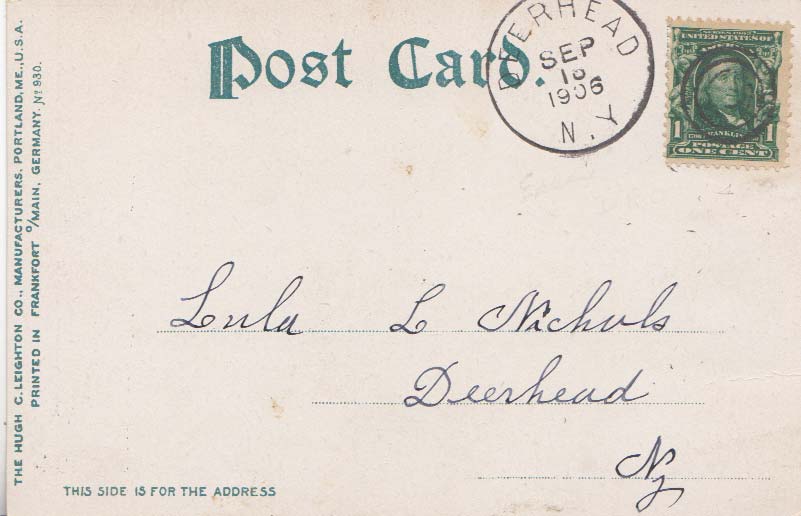 Post Card.
DEERHEAD
SEP
1906
N.Y
SERIES 1902
UNITED STATES OF
AMERICA
1 FRANKLIN 1
POSTAGE
ONE CENT
THE HUGH C. LEIGHTON CO., MANUFACTURERS, PORTLAND, ME., U.S.A.
PRINTED IN FRANKFORT o/MAIN, GERMANY. No 930.
Lula L Nichols
Deerhead
Ny
THIS SIDE IS FOR THE ADDRESS